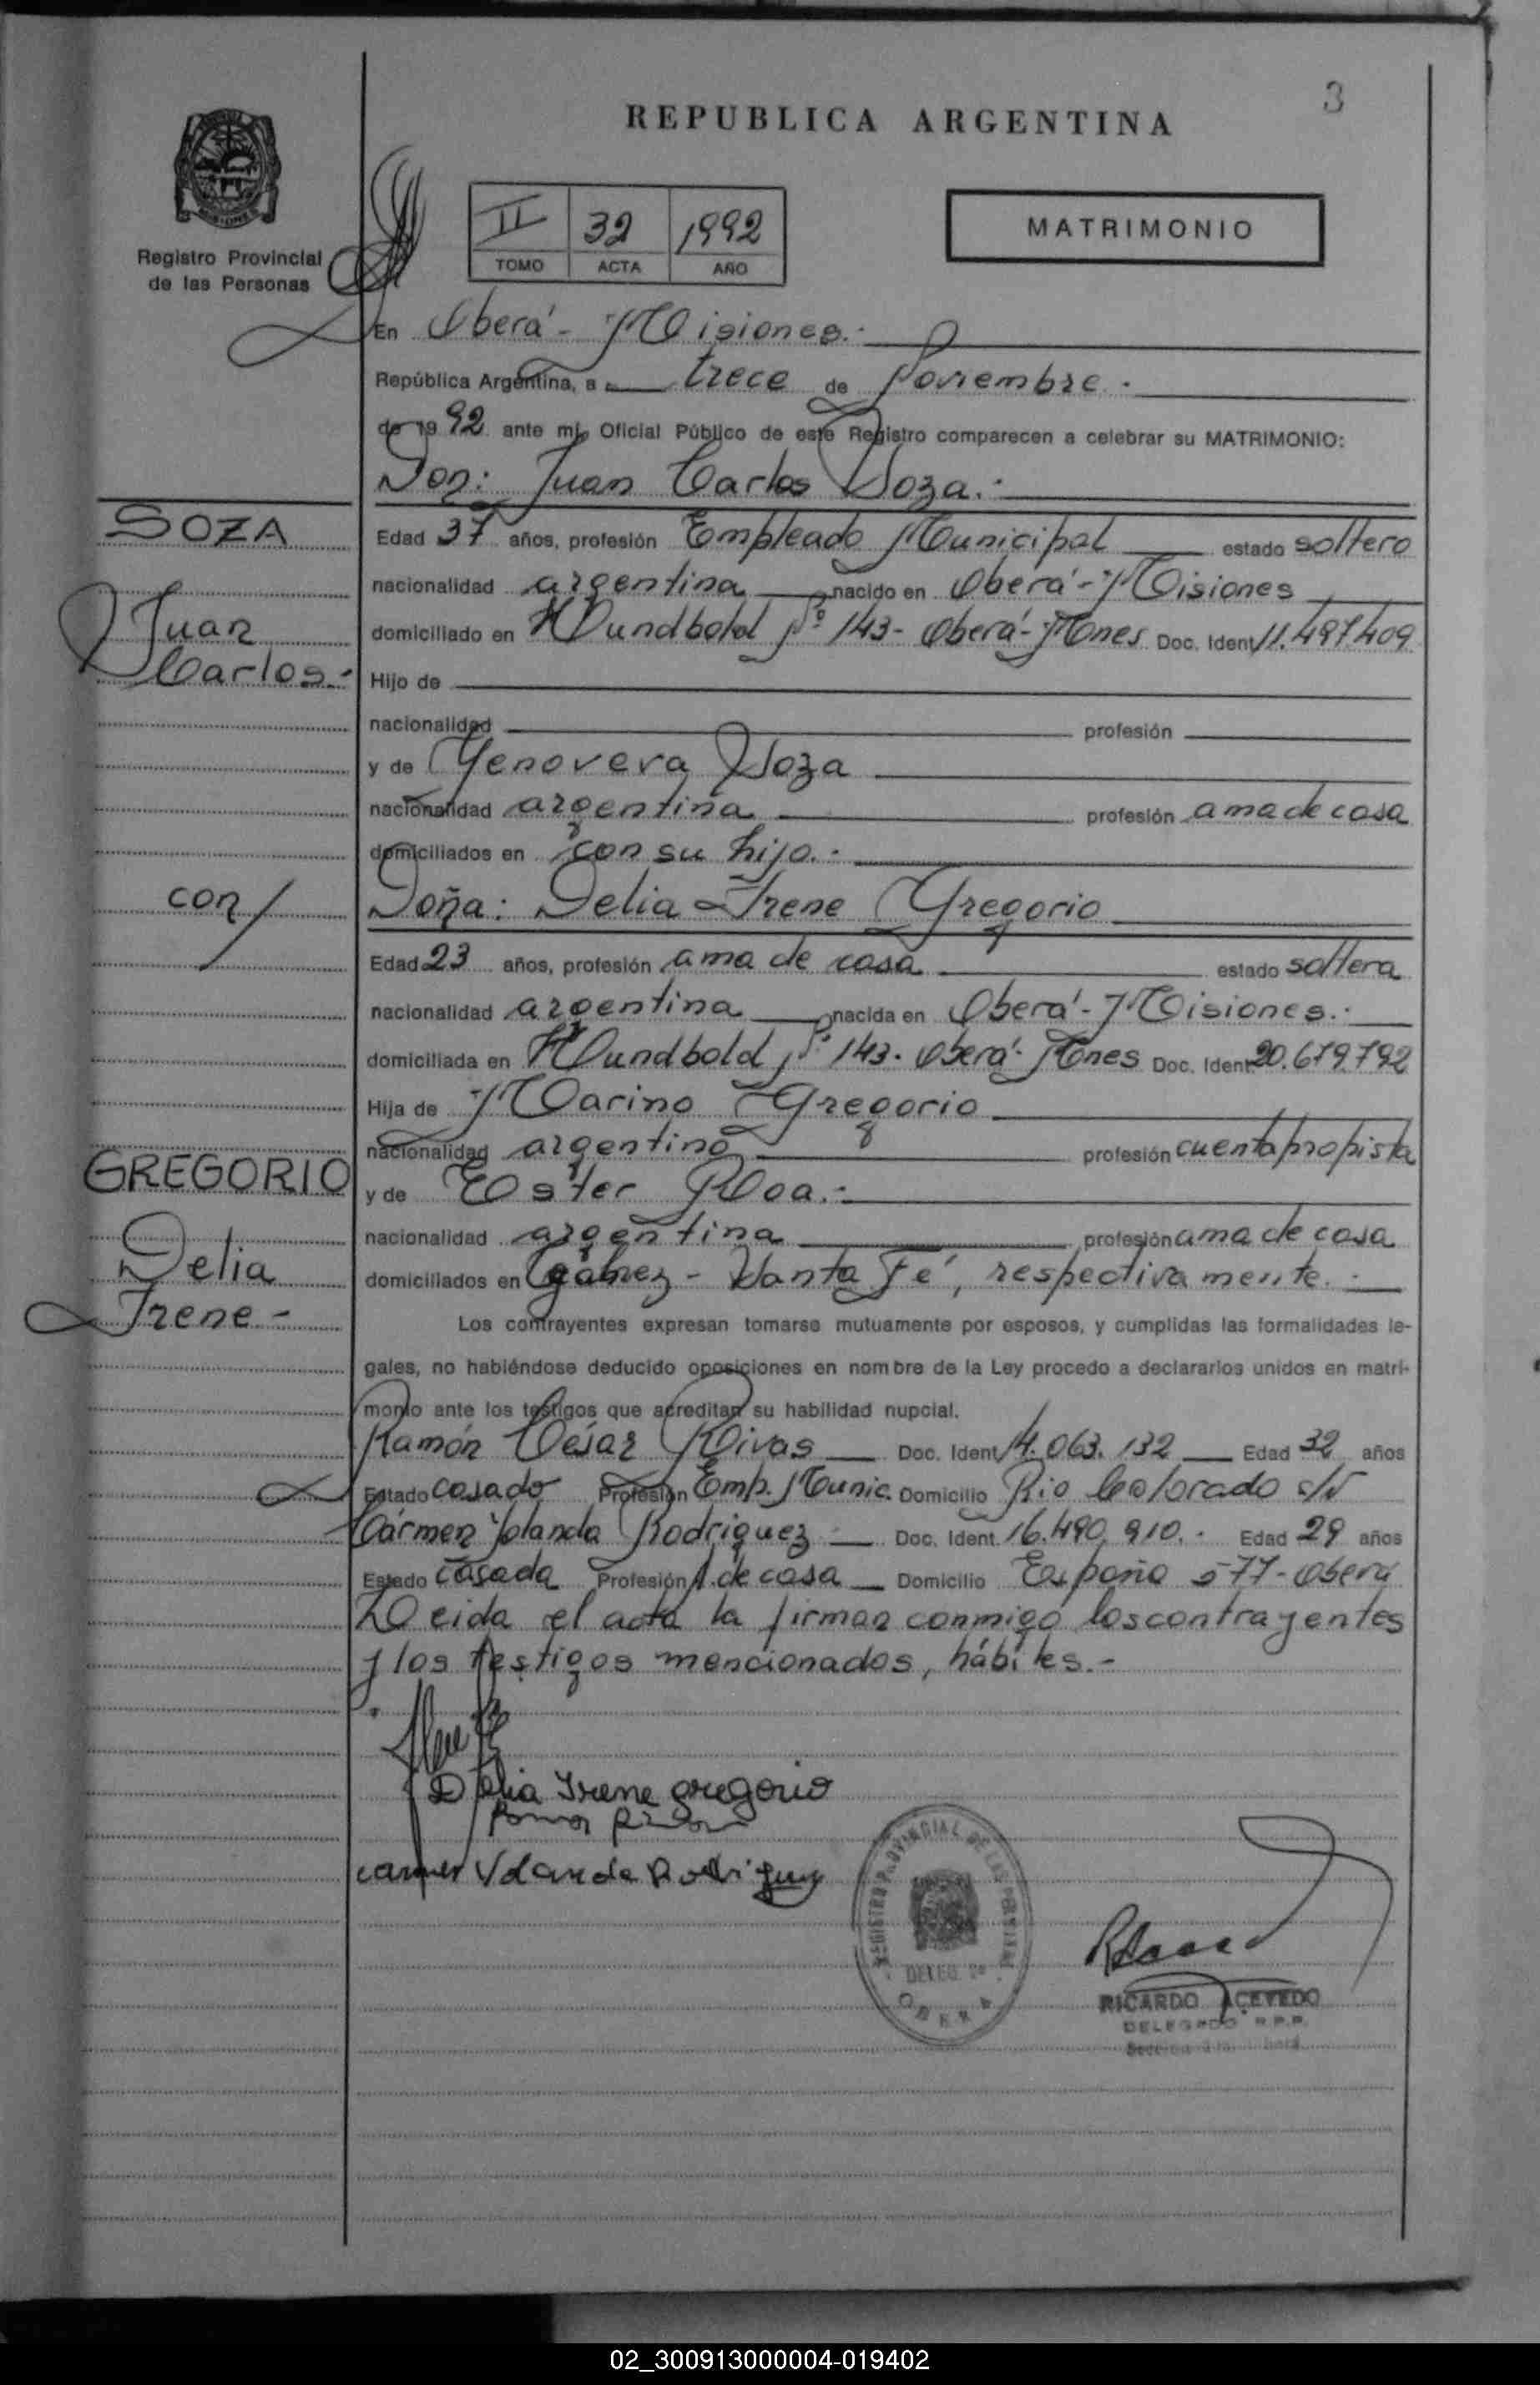 3
REPUBLICA ARGENTINA
II 32 1992
TOMO ACTA AÑO
MATRIMONIO
Registro Provincial
de las Personas
En Oberá - Misiones.-
República Argentina, a trece de Noviembre.-
de 1992 ante mí, Oficial Público de este Registro comparecen a celebrar su MATRIMONIO:
Don: Juan Carlos Soza.-
SOZA
Juan
Carlos.-
Edad 37 años, profesión Empleado Municipal estado soltero
nacionalidad argentina nacido en Oberá - Misiones
domiciliado en Hundbold Nº 143 - Oberá - Mnes Doc. Ident 11.497.409
Hijo de
nacionalidad profesión
y de Genoveva Soza
nacionalidad argentina profesión ama de casa
domiciliados en con su hijo.-
con/
Doña: Delia Irene Gregorio
Edad 23 años, profesión ama de casa estado soltera
nacionalidad argentina nacida en Oberá - Misiones.-
domiciliada en Hundbold Nº 143. Oberá - Mnes Doc. Ident 20.679.792
Hija de Marino Gregorio
nacionalidad argentino profesión cuentapropista
GREGORIO
Delia
Irene -
y de Ester Roa.-
nacionalidad argentina profesión ama de casa
domiciliados en Galvez - Santa Fé, respectivamente.-
Los contrayentes expresan tomarse mutuamente por esposos, y cumplidas las formalidades le-
gales, no habiéndose deducido oposiciones en nombre de la Ley procedo a declararlos unidos en matri-
monio ante los testigos que acreditan su habilidad nupcial.
Ramón César Rivas Doc. Ident 14.063.132 Edad 32 años
Estado casado Profesión Emp. Munic. Domicilio Rio Colorado s/N
Cármen Yolanda Rodriguez Doc. Ident. 16.490.910.- Edad 29 años
Estado casada Profesión A. de casa Domicilio España 577 - Oberá
Leida el acta la firman conmigo los contrayentes
y los testigos mencionados, hábiles.-
Delia Irene gregorio
carmen Yolanda Rodriguez
REGISTRO PROVINCIAL DE LAS PERSONAS
DELEG.
OBERA
RICARDO ACEVEDO
DELEGADO R.P.P.
02_300913000004-019402